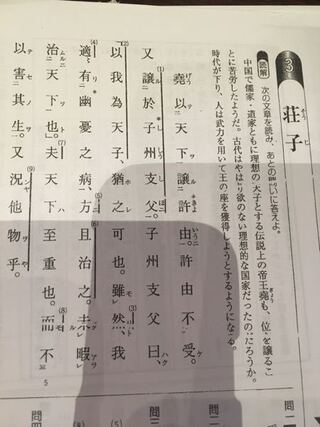 3
荘子
読解 次の文章を読み、あとの問いに答えよ。
中国で儒家・道家ともに理想の天子とする伝説上の帝王堯も、位を譲るこ
とに苦労したようだ。古代はやはり欲のない理想的な国家だったのだろうか。
時代が下り、人は武力を用いて王の座を獲得しようとするようになる。
堯以天下譲許由。許由不受。
又譲於子州支父。子州支父曰、
以我為天子、猶之可也。雖然、我
適有幽憂之病、方且治之。未暇
治天下也。夫天下至重也。而不
以害其生。又況他物乎。
5
問
問
問